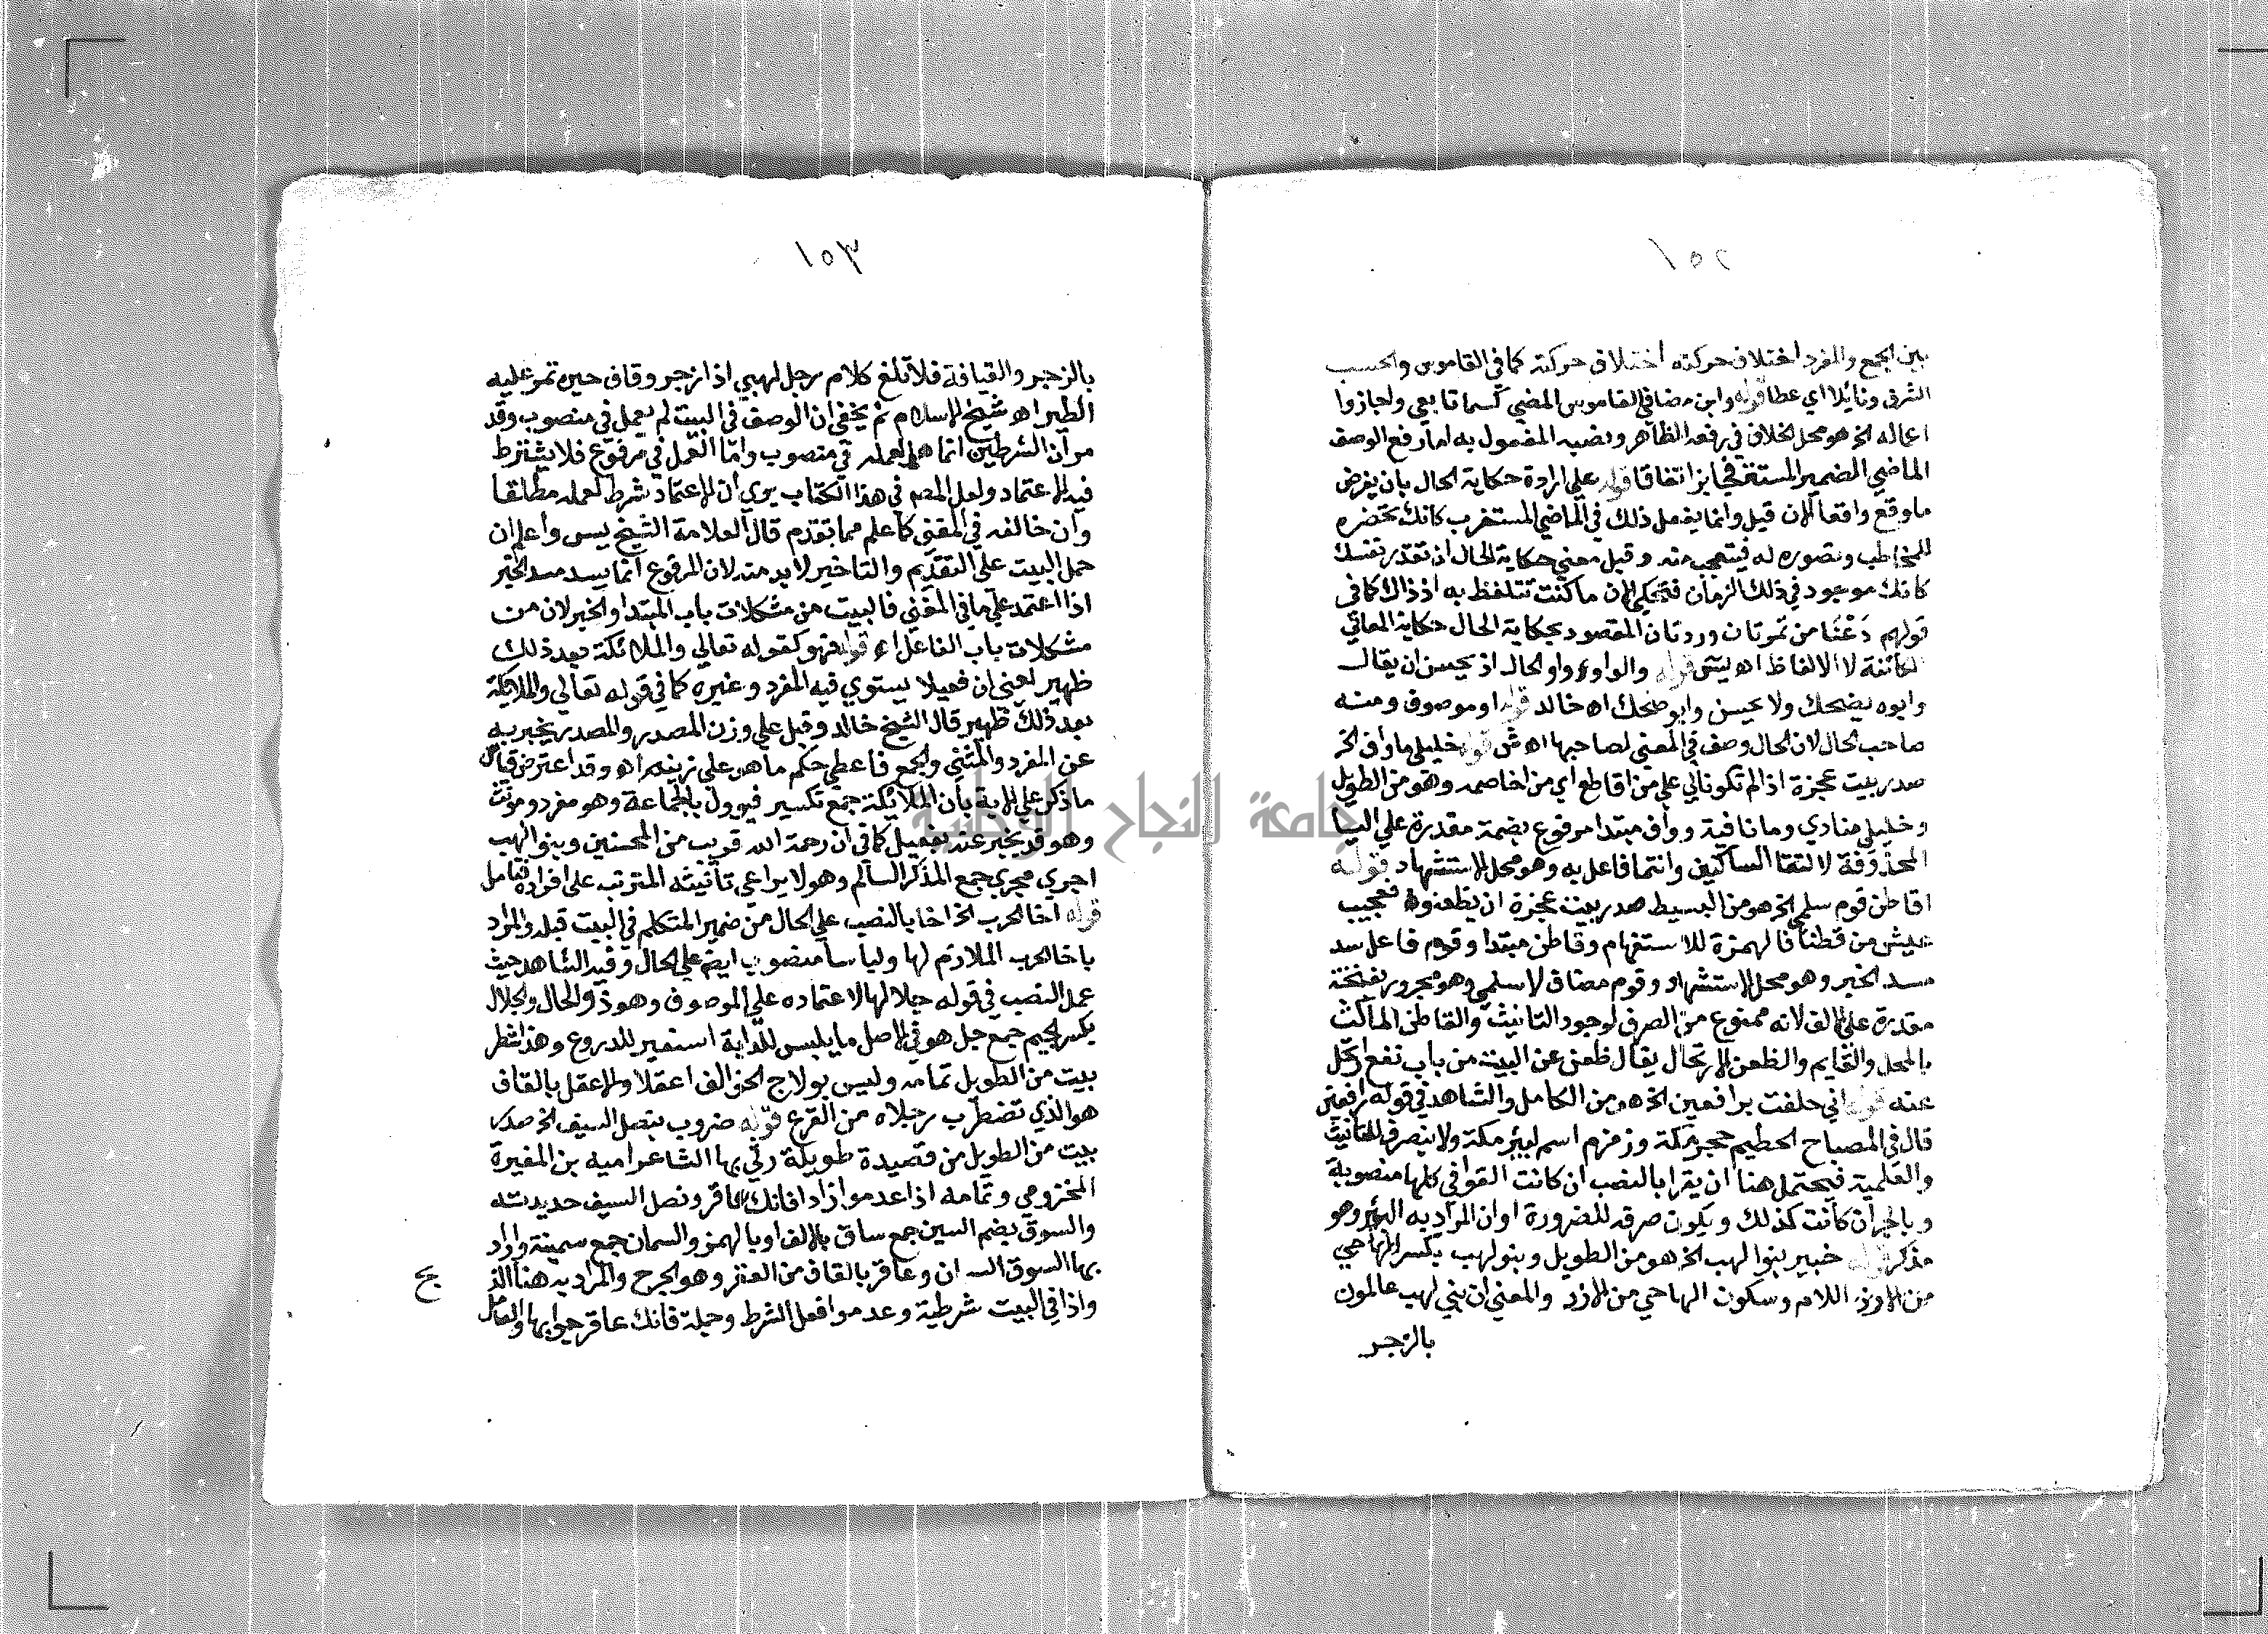 ١٥٢
بين الجمع والمفرد اختلاف حركته اختلاف حركته كما في القاموس والحسب
الشرف ونائلا اي عطا قوله وابن مضا في القاموس المضي كسما تابعي واجازوا
اعماله الخ هو محل الخلاف في رفعه الظاهر ونصبه المفعول به اما رفع الوصف
الماضي الضمير المستتر فجايز اتفاقا قوله علي ارادة حكاية الحال بان يفرض
ما وقع واقعا الان قيل وانما يفعل ذلك في الماضي المستغرب كانك تحضره
للمخاطب وتصوره له فيتعجب منه وقيل معني حكاية الحال ان تقدر نفسك
كانك موجود في ذلك الزمان فتحكي الان ما كنت تتلفظ به اذ ذاك كما في
قولهم دعنا من تمرتان وردتان المقصود بحكاية الحال حكاية المعاني
الكائنة لا الالفاظ اه يس قوله والواو واو الحال اذ يحسن ان يقال
وابوه يضحك ولا يحسن وابوه ضحك اه خالد قوله او موصوف ومنه
صاحب الحال لان الحال وصف في المعني لصاحبها اه ش قوله خليلي ما واف الخ
صدر بيت عجزه اذا لم تكونا لي علي من اقاطع اي من اخاصمه وهو من الطويل
وخليلي منادي وما نافية وواف مبتدا مرفوع بضمة مقدرة علي اليا
المحذوفة لالتقا الساكنين وانتما فاعل به وهو محل الاستشهاد قوله
اقاطن قوم سلمي الخ هو من البسيط صدر بيت عجزه ان يظعنوا فعجيب
عيش من قطنا فالهمزة للاستفهام وقاطن مبتدا وقوم فاعل سد
مسد الخبر وهو محل الاستشهاد وقوم مضاف لاسلمي وهو مجرور بفتحة
مقدرة علي الالف لانه ممنوع من الصرف لوجود التانيث والقاطن الماكث
بالمحل والقايم والظعن الارتحال يقال ظعن عن البيت من باب نفع ارتحل
عنه قوله اني حلفت برافعين الخ هو من الكامل والشاهد في قوله رافعين
قال في المصباح الحطيم حجر مكة وزمزم اسم لبئر مكة ولا ينصرف للتانيث
والعلمية فيحتمل هنا ان يقرا بالنصب ان كانت القوافي كلها منصوبة
وبالجر ان كانت كذلك ويكون صرفه للضرورة او ان المراد به البئر وهو
مذكر قوله خبير بنوا لهب الخ هو من الطويل وبنو لهب بكسر الهاء حي
من الازد اللام وسكون الها حي من الازد والمعني ان بني لهب عالمون
بالزجر
١٥٣
بالزجر والقيافة فلا تلغ كلام رجل لهبي اذا زجر وقاف حين تمر عليه
الطير اه شيخ الاسلام ثم يخفي ان الوصف في البيت لم يعمل في منصوب وقد
مر ان الشرطين انما هما لعمله في منصوب واما العمل في مرفوع فلا يشترط
فيه الاعتماد ولعل المصر في هذا الكتاب يري ان الاعتماد شرط لعمله مطلقا
وان خالفه في المغني كما علم مما تقدم قال العلامة الشيخ يس واعلم ان
حمل البيت علي التقديم والتاخير لا بد منه لان المرفوع انما يسد مسد الخبر
اذا اعتمد علي ما في المغني فالبيت من مشكلات باب المبتدا والخبر لا من
مشكلات باب الفاعل اه قوله فهو كقوله تعالي والملائكة بعد ذلك
ظهير يعني ان فعيلا يستوي فيه المفرد وغيره كما في قوله تعالي والملائكة
بعد ذلك ظهير قال الشيخ خالد وقيل علي وزن المصدر والمصدر يخبر به
عن المفرد والمثني والجمع فاعطي حكم ما هو علي زينته اه وقد اعترض قياس
ما ذكر علي الاية بان الملائكة جمع تكسير فيوول بالجماعة وهو مفرد ومونث
وهو قد يخبر عنه بفعيل كما في ان رحمة الله قريب من المحسنين وبنوا لهب
اجري مجري جمع المذكر السالم وهو لا يراعي تانيثه المترتب علي افراده فتامل
قوله اخا الحرب الخ اخا بالنصب علي الحال من ضمير المتكلم في البيت قبله والمراد
باخا الحرب الملازم لها ولباسا منصوب ايضا علي الحال وفيه الشاهد حيث
عمل النصب في قوله جلالها لاعتماده علي الموصوف وهو ذو الحال والجلال
بكسر الجيم جمع جل هو في الاصل ما يلبس للدابة استعير للدروع وهذا شطر
بيت من الطويل تمامه وليس بولاج الخوالف اعقلا والاعقل بالقاف
هو الذي تضطرب رجلاه من القرع قوله ضروب بنصل السيف الخ صدر
بيت من الطويل من قصيدة طويلة رثي بها الشاعر اميه بن المغيرة
المخزومي وتمامه اذا عدموا زادا فانك عاقر ونصل السيف حديدته
والسوق بضم السين جمع ساق بالالف او بالهمز والسمان جمع سمينة واراد
بها السوق السمان وعاقر بالقاف من العقر وهو الجرح والمراد به هنا الذ
بح
واذا في البيت شرطية وعدموا فعل الشرط وجملة فانك عاقر جوابها والعامل
جامعة النجاح الوطنية